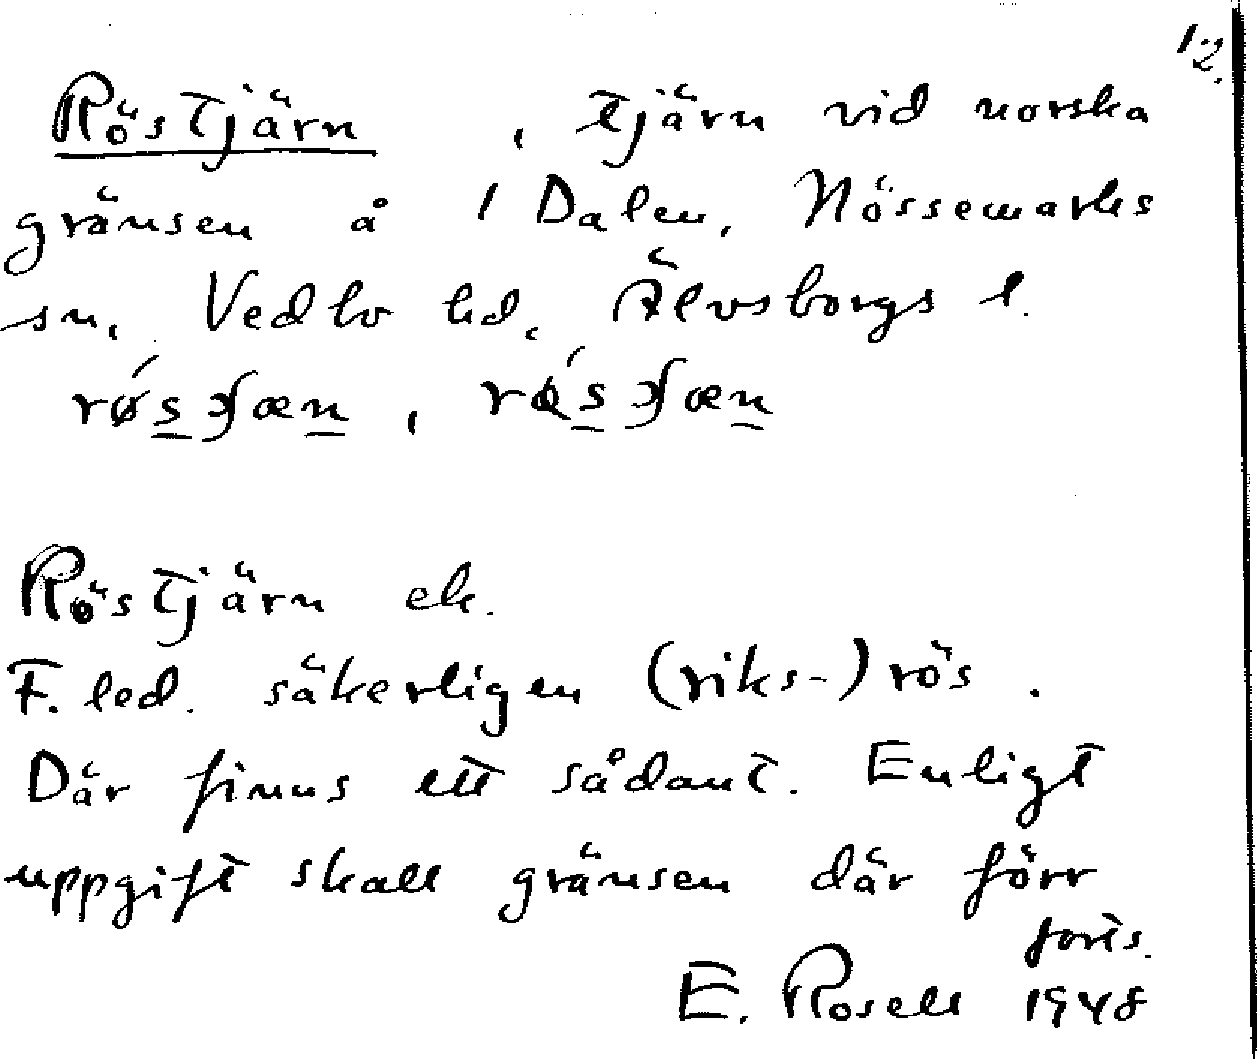 12.
Röstjärn , tjärn vid norska
gränsen å 1 Dalen, Nössemarks
sn, Vedbo hd, Älvsborgs l.
Röstjärn ek.
F. led. säkerligen (riks-)rös .
Där finns ett sådant. Enligt
uppgift skall gränsen där förr
forts.
E. Rosell 1948